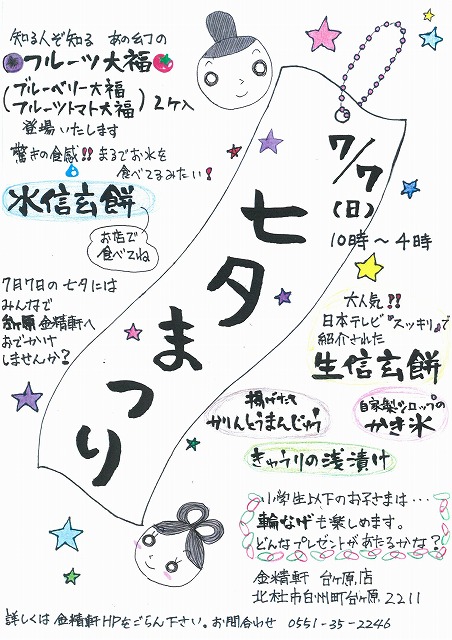 知る人ぞ知る あの幻の
フルーツ大福
(ブルーベリー大福
フルーツトマト大福) 2ケ入
登場いたします
驚きの食感!! まるでお水を
食べてるみたい!
水信玄餅
お店で
食べてね
7月7日の七夕には
みんなで
台ヶ原金精軒へ
おでかけ
しませんか?
七夕まつり
7/7
(日)
10時〜4時
大人気!!
日本テレビ『スッキリ』で
紹介された
生信玄餅
揚げたて
かりんとうまんじゅう
自家製シロップの
かき氷
きゅうりの浅漬け
小学生以下のお子さまは…
輪なげも楽しめます。
どんなプレゼントがあたるかな?
金精軒 台ヶ原店
北杜市白州町台ヶ原2211
詳しくは 金精軒HPをごらん下さい。お問合わせ 0551-35-2246